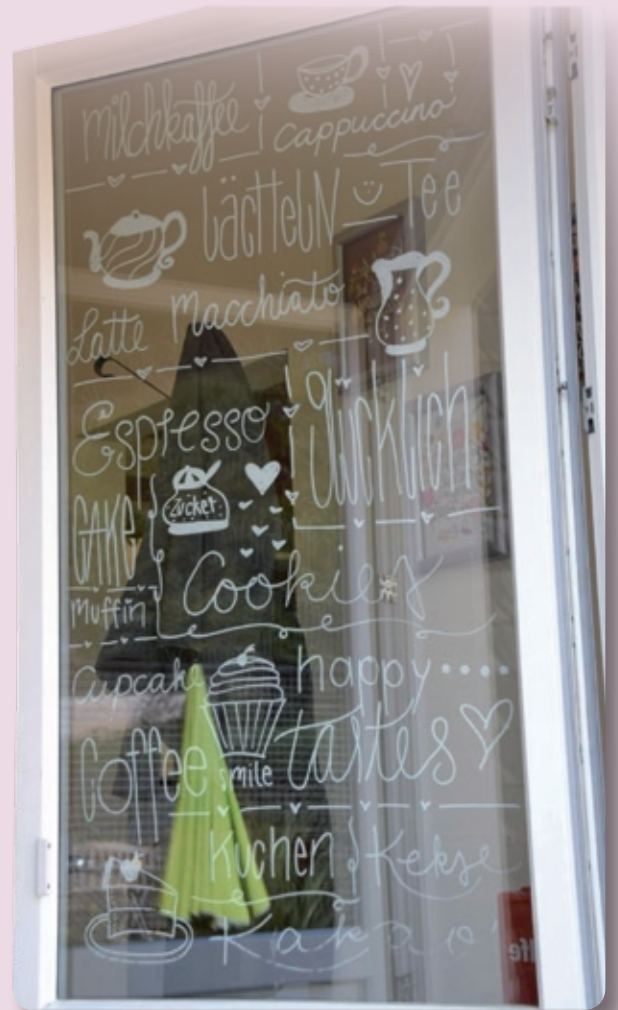 Milchkaffee cappuccino
LäCHTELN Tee
Latte Macchiato
Espresso glücklich
Zucker
CAKE
Cookies
Muffin
Cupcake happy....
Coffee smile tastes
Kuchen Kekse
Kakao